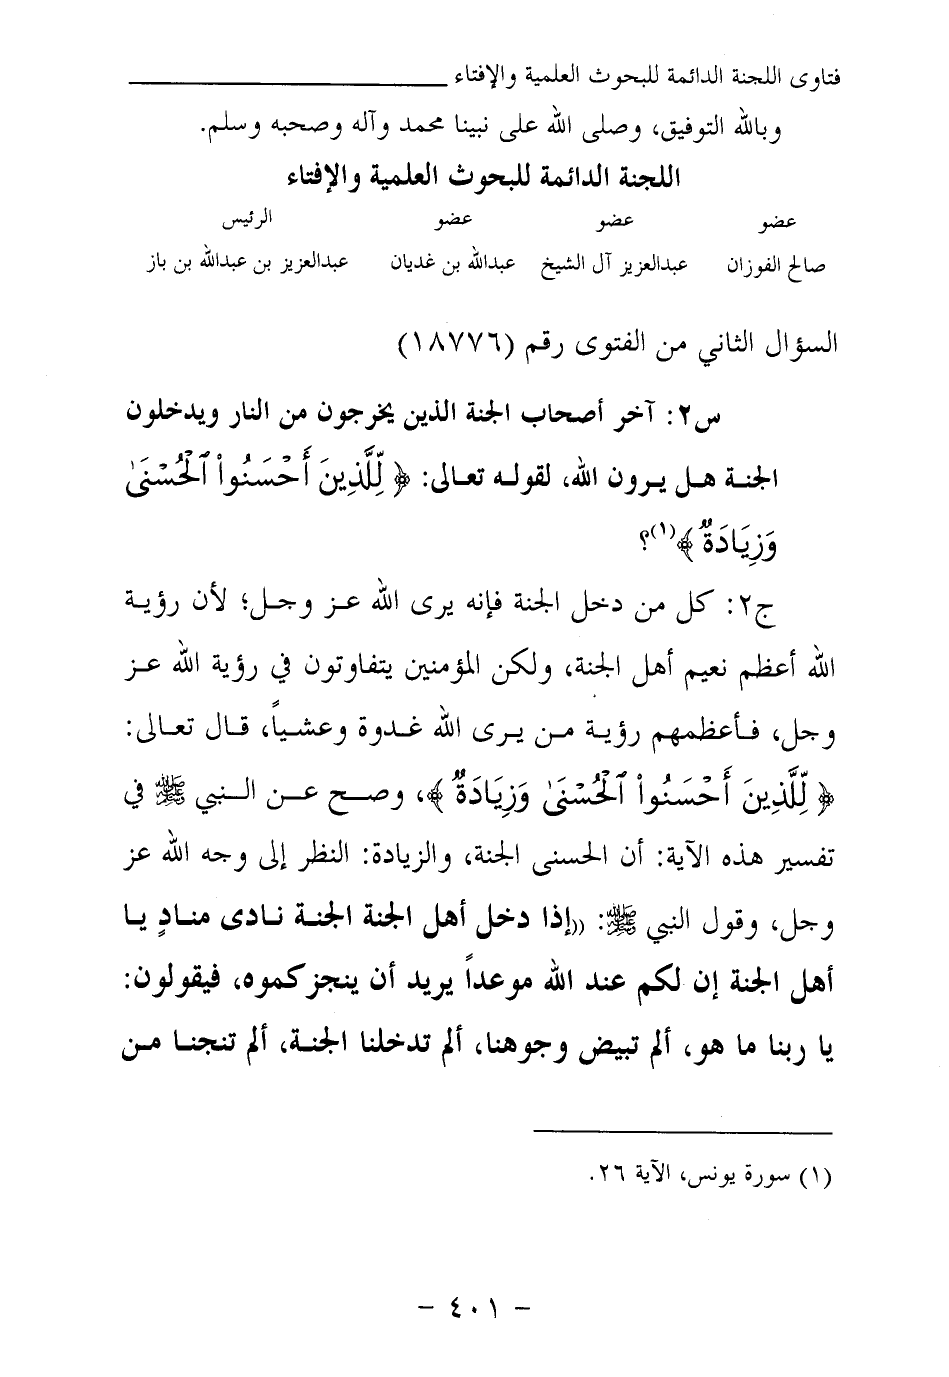 فتاوى اللجنة الدائمة للبحوث العلمية والإفتاء
وبالله التوفيق، وصلى الله على نبينا محمد وآله وصحبه وسلم.
اللجنة الدائمة للبحوث العلمية والإفتاء
عضو عضو عضو الرئيس
صالح الفوزان عبدالعزيز آل الشيخ عبدالله بن غديان عبدالعزيز بن عبدالله بن باز
السؤال الثاني من الفتوى رقم (١٨٧٧٦)
س٢: آخر أصحاب الجنة الذين يخرجون من النار ويدخلون
الجنة هل يرون الله، لقوله تعالى: ﴿ لِّلَّذِينَ أَحْسَنُوا۟ ٱلْحُسْنَىٰ
وَزِيَادَةٌ ﴾(١)؟
ج٢: كل من دخل الجنة فإنه يرى الله عز وجل؛ لأن رؤية
الله أعظم نعيم أهل الجنة، ولكن المؤمنين يتفاوتون في رؤية الله عز
وجل، فأعظمهم رؤية من يرى الله غدوة وعشياً، قال تعالى:
﴿ لِّلَّذِينَ أَحْسَنُوا۟ ٱلْحُسْنَىٰ وَزِيَادَةٌ ﴾، وصح عن النبي ﷺ في
تفسير هذه الآية: أن الحسنى الجنة، والزيادة: النظر إلى وجه الله عز
وجل، وقول النبي ﷺ: ((إذا دخل أهل الجنة الجنة نادى منادٍ يا
أهل الجنة إن لكم عند الله موعداً يريد أن ينجزكموه، فيقولون:
يا ربنا ما هو، ألم تبيض وجوهنا، ألم تدخلنا الجنة، ألم تنجنا من
(١) سورة يونس، الآية ٢٦.
- ٤٠١ -